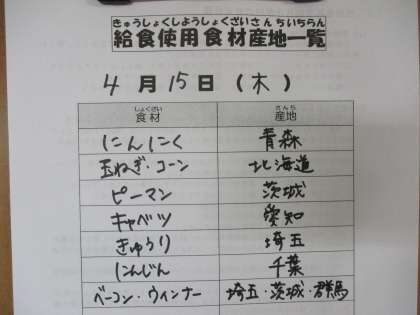 きゅうしょくしようしょくざいさんちいちらん
給食使用食材産地一覧
4月15日(木)
しょくざい さんち
食材 産地
にんにく 青森
玉ねぎ・コーン 北海道
ピーマン 茨城
キャベツ 愛知
きゅうり 埼玉
にんじん 千葉
ベーコン・ウィンナー 埼玉・茨城・群馬